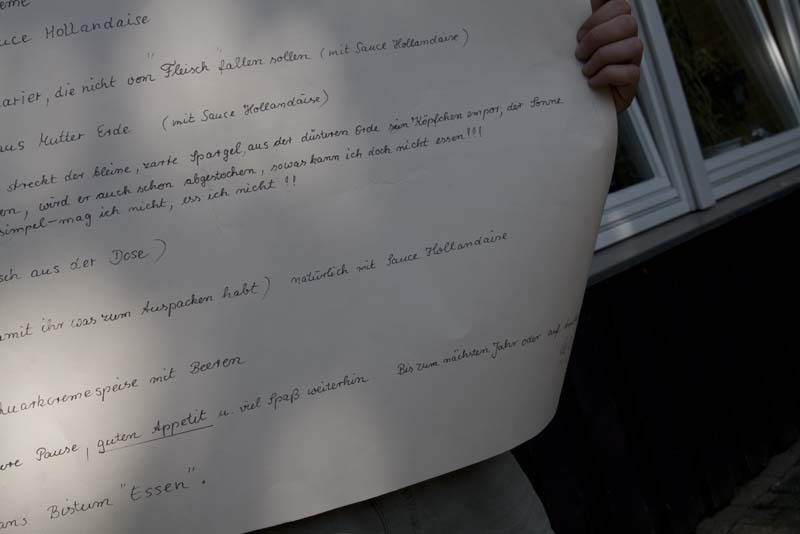 eme
uce Hollandaise
arier, die nicht vom "Fleisch" fallen sollen (mit Sauce Hollandaise)
aus Mutter Erde (mit Sauce Hollandaise)
streckt der kleine, zarte Spargel, aus der düsteren Erde sein Köpfchen empor, der Sonne
en, wird er auch schon abgestochen, sowas kann ich doch nicht essen!!!
simpel-mag ich nicht, ess ich nicht!!
sch aus der Dose)
amit ihr was zum Auspacken habt) natürlich mit Sauce Hollandaise
uarkcremespeise mit Beeren
ure Pause, guten Appetit u. viel Spaß weiterhin Bis zum nächsten Jahr oder auf
ans Bistum "Essen".